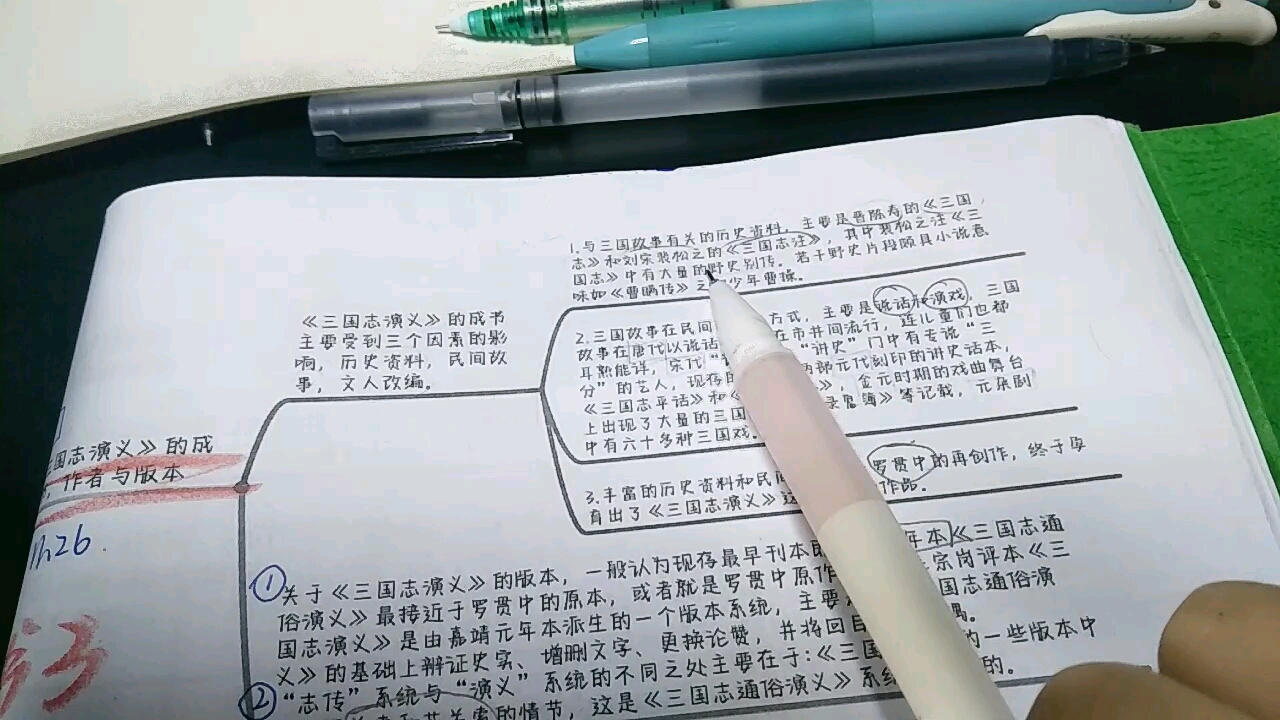 1.与三国故事有关的历史资料，主要是晋陈寿的《三国
志》和刘宋裴松之的《三国志注》，其中裴松之注《三
国志》中有大量的野史别传。若干野史片段颇具小说意
味如《曹瞒传》之 少年曹操。
《三国志演义》的成书
主要受到三个因素的影
响，历史资料，民间故
事，文人改编。
2.三国故事在民间 方式，主要是说话和演戏，三国
故事在唐代以说话 在市井间流行，连儿童们也都
耳熟能详，宋代“ “讲史”门中有专说“三
分”的艺人，现存的 两部元代刻印的讲史话本，
《三国志平话》和《 》，金元时期的戏曲舞台
上出现了大量的三国 录鬼簿》等记载，元杂剧
中有六十多种三国戏。
3.丰富的历史资料和民间 罗贯中的再创作，终于孕
育出了《三国志演义》这 作品。
国志演义》的成
，作者与版本
1h26
①关于《三国志演义》的版本，一般认为现存最早刊本 年本《三国志通
俗演义》最接近于罗贯中的原本，或者就是罗贯中原作 宗岗评本《三
国志演义》是由嘉靖元年本派生的一个版本系统，主要 国志通俗演
义》的基础上辩证史实、增删文字、更换论赞，并将回目 偶。
②“志传”系统与“演义”系统的不同之处主要在于：《三国 的一些版本中
关索的情节，这是《三国志通俗演义》系 的。